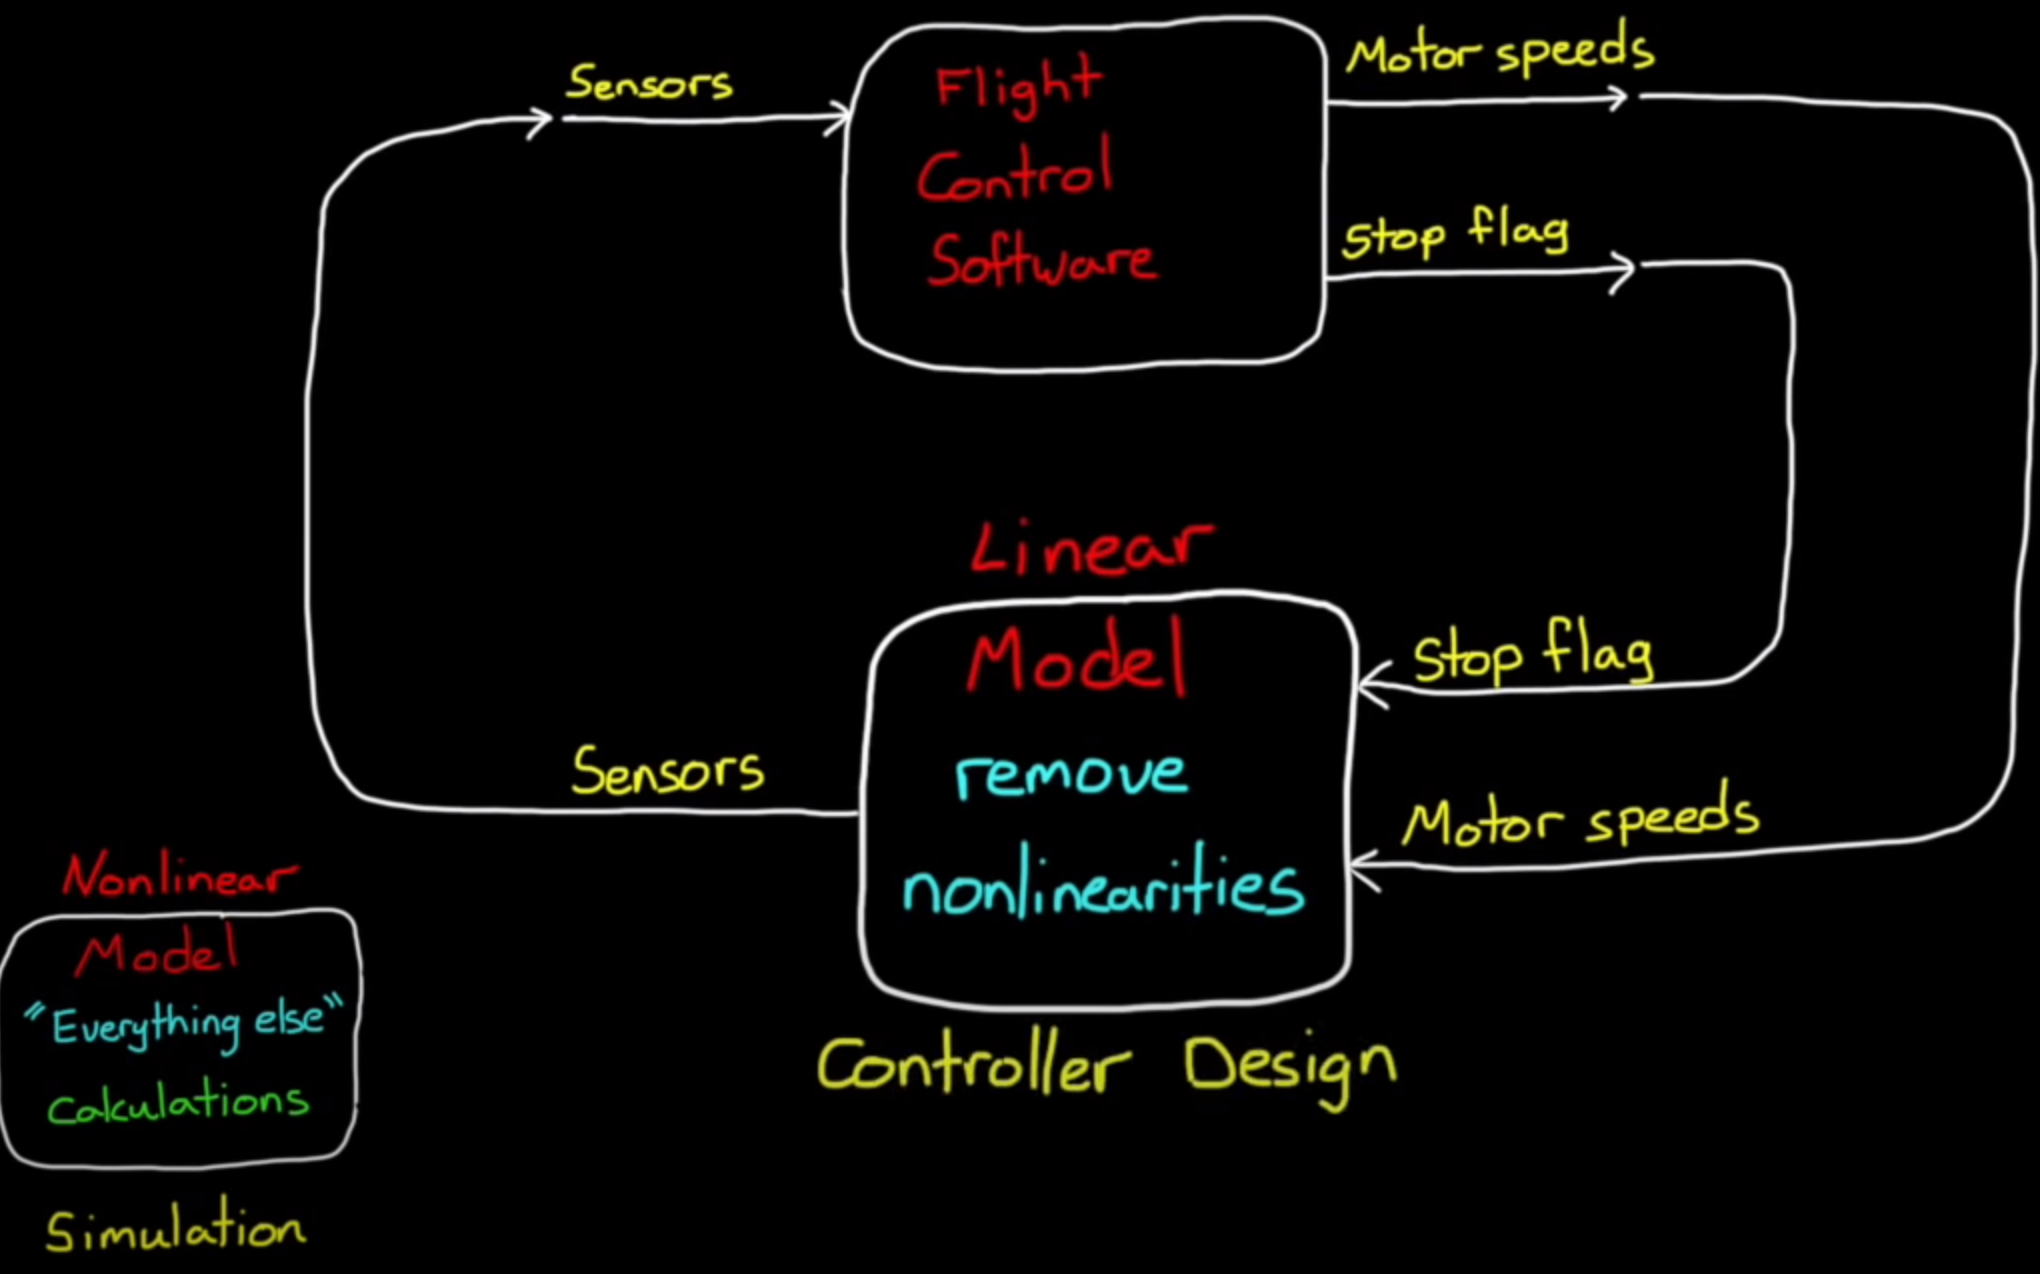 Sensors
Flight
Control
Software
Motor speeds
Stop flag
Linear
Model
remove
nonlinearities
Stop flag
Motor speeds
Sensors
Controller Design
Nonlinear
Model
"Everything else"
Calculations
Simulation